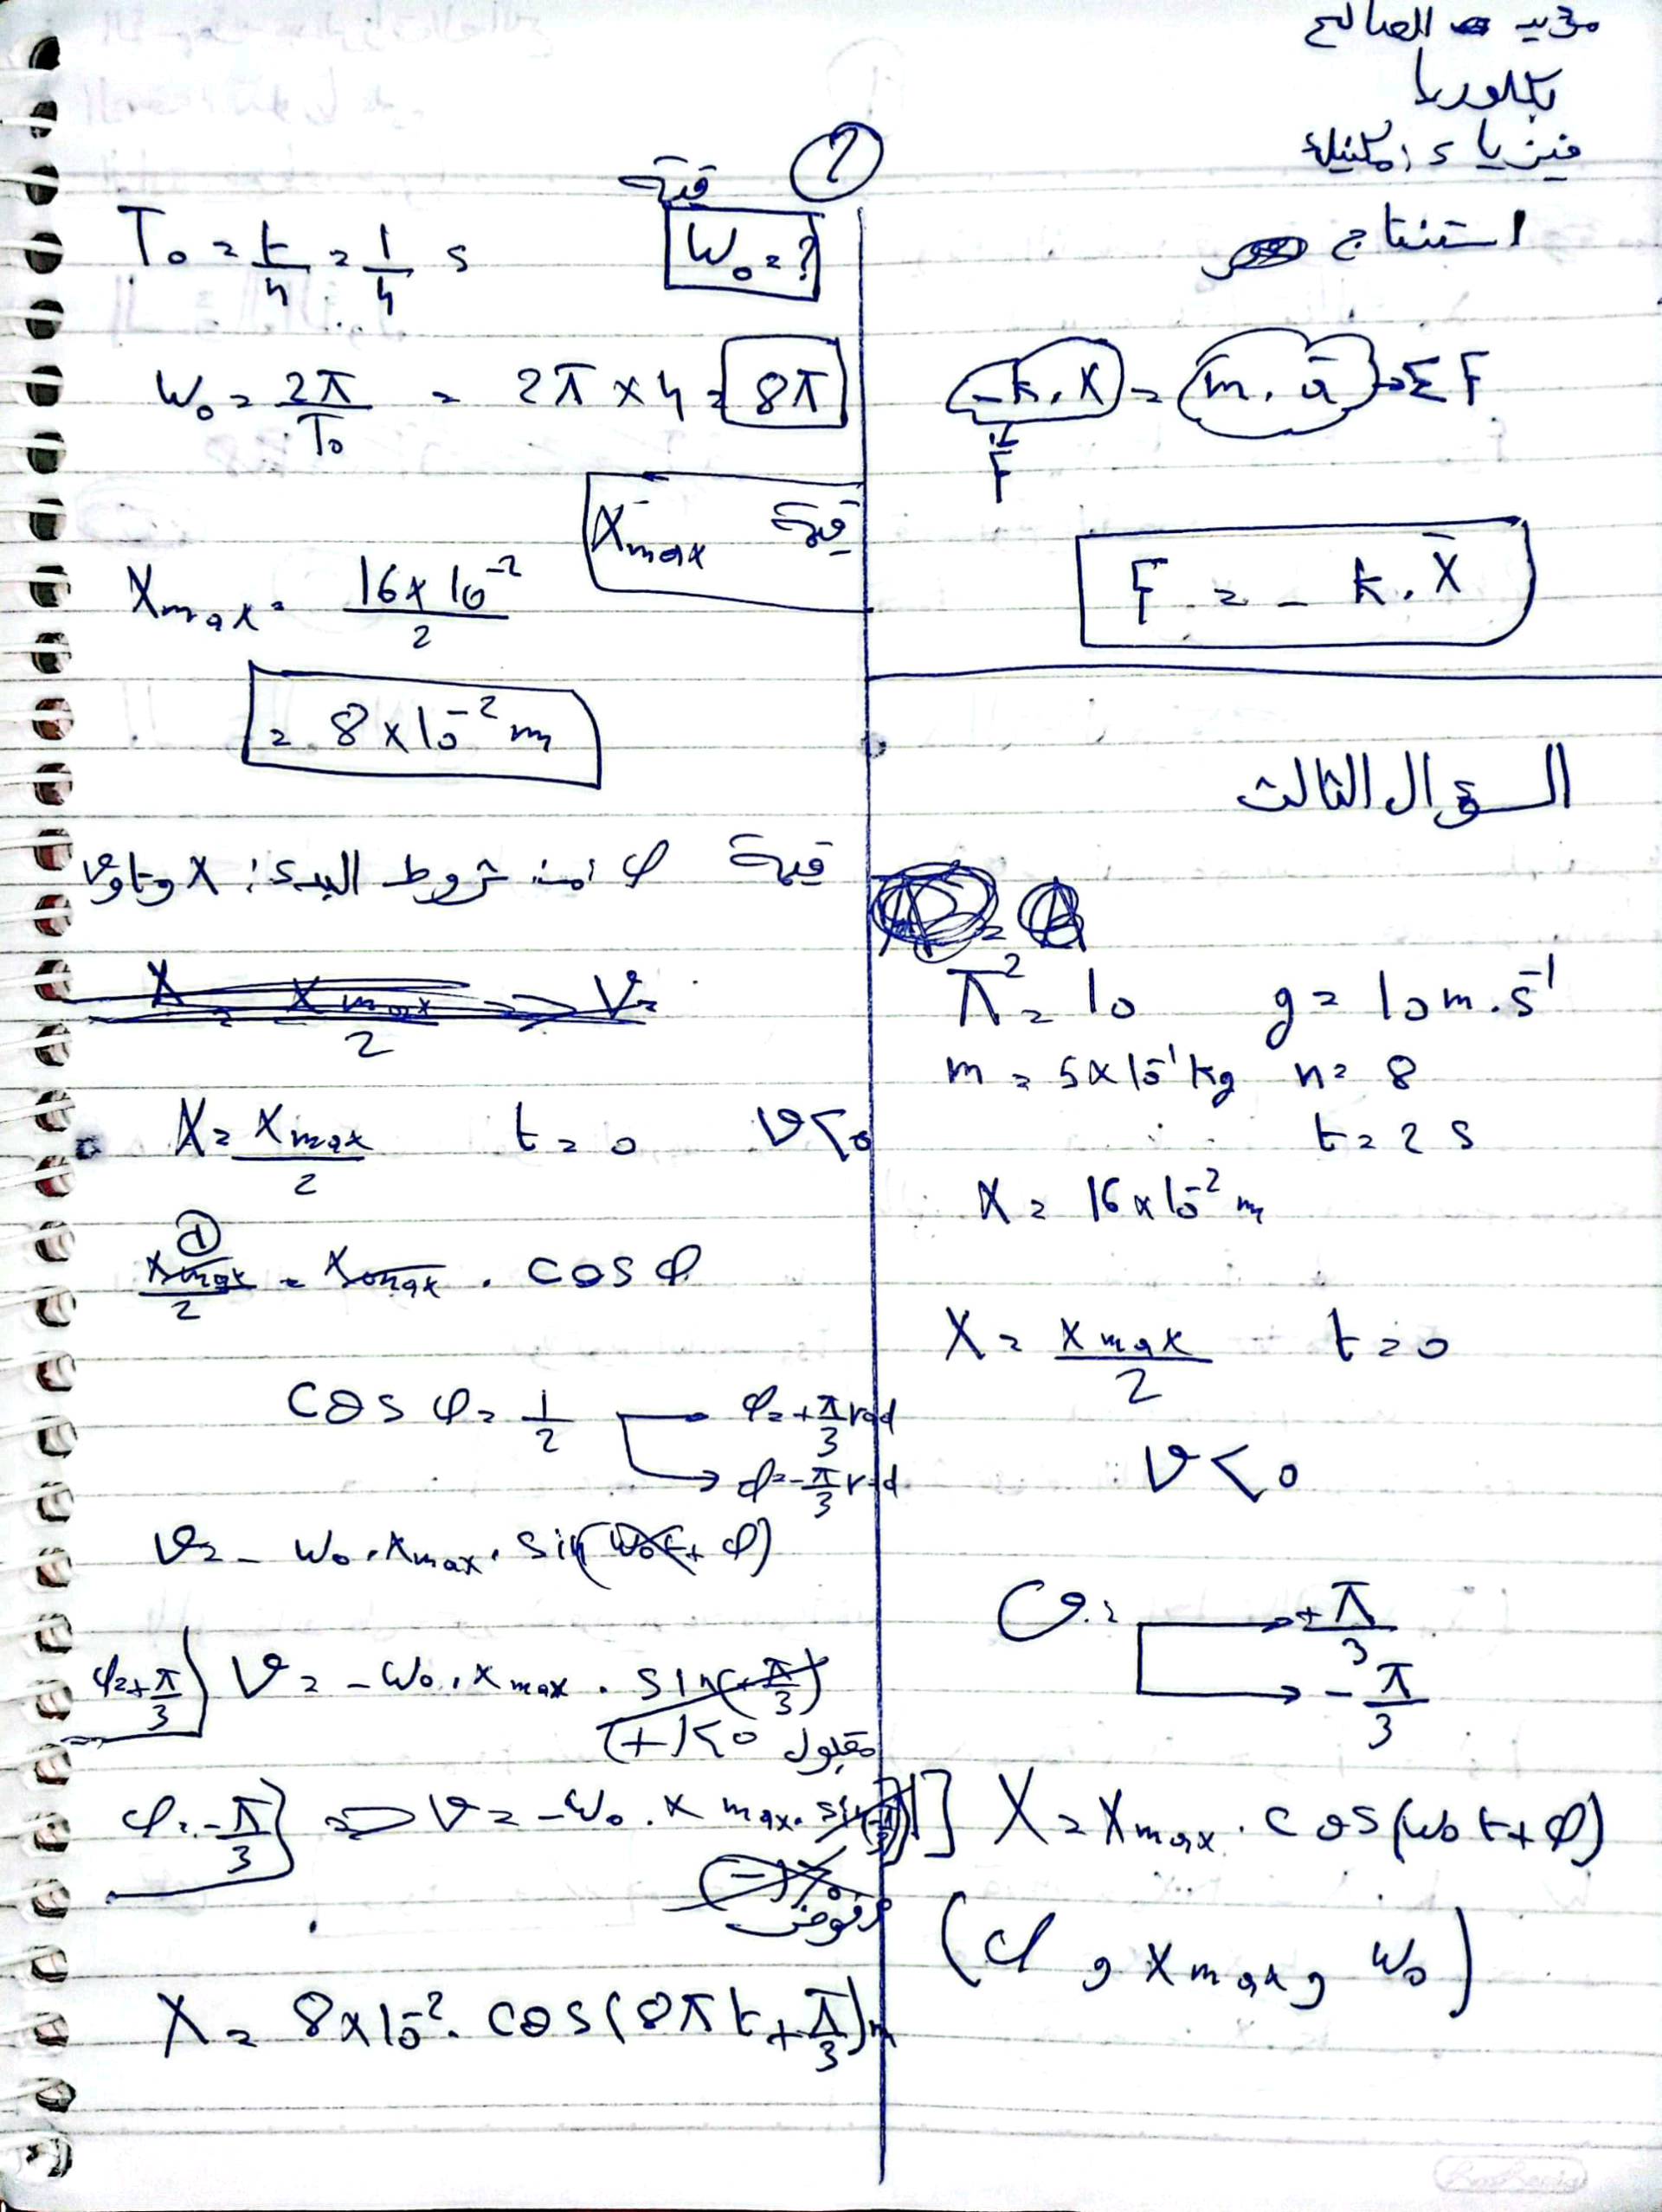 مؤيد الصالح
بكلوريا
فيزياء
2
استنتاج
-k . x̄ = m . ā → ΣF
F
F = - k . x̄
السؤال الثالث
π² = 10 g = 10 m . s⁻¹
m = 5 × 10⁻¹ kg n = 8
t = 2 s
X = 16 × 10⁻² m
X = Xmax / 2 t = 0
v < 0
φ = + π/3
- π/3
1] X = Xmax . cos(ω₀ t + φ)
(φ و Xmax و ω₀)
قيمة
ω₀ = ?
T₀ = t/n = 1/4 s
ω₀ = 2π/T₀ = 2π × 4 = 8π
قيمة Xmax
Xmax = 16 × 10⁻² / 2
= 8 × 10⁻² m
قيمة φ من شروط البدء: X
X = Xmax / 2 ⇒ V =
X = Xmax / 2 t = 0 v < 0
① Xmax / 2 = Xmax . cos φ
cos φ = 1/2 → φ = + π/3 rad
→ φ = - π/3 rad
v = - ω₀ . Xmax . sin(ω₀t + φ)
φ = + π/3 } v = - ω₀ . Xmax . sin(+ π/3)
(+) < 0 مقبول
φ = - π/3 } ⇒ v = - ω₀ . Xmax . sin(- π/3)
مرفوض
X = 8 × 10⁻² . cos(8πt + π/3) m